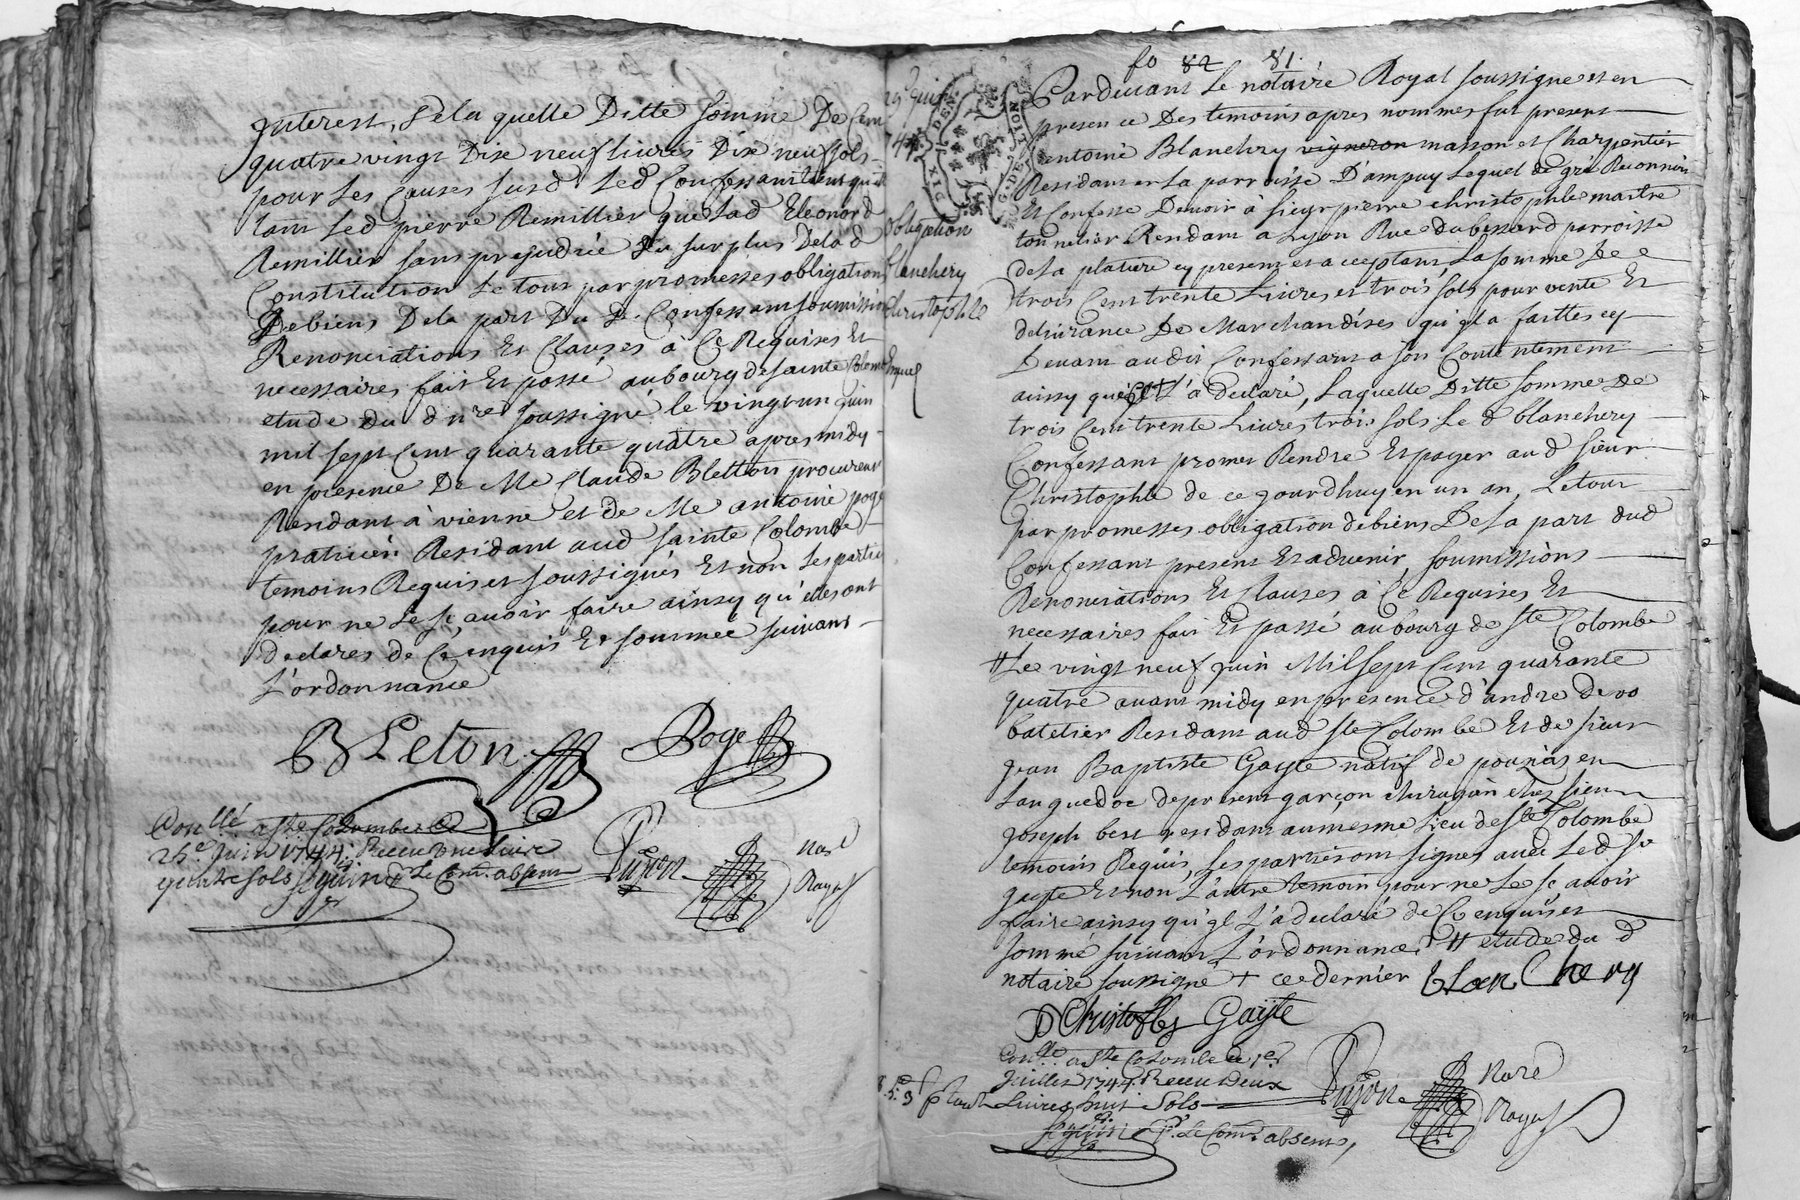 Interest, de la quelle Ditte somme De Cent
quatre vingt Dixe neuf livres Dixe neuf sols
pour les Causes susd led Confessant tient quitte
tant led pierre Remillier que lad Eleonord
Remillier sans prejudice du surplus De lad
Constitution le tout par promesses obligation
De biens De la part Du d. Confessant soumission
Renonciations Et Clauses à Ce Requises Et
necessaires fait Et passé au bourg de sainte Colombe
etude du d nre soussigné le vingt un juin
mil sept Cent quarante quatre apres midy
en presence De Me Claude Bletton procureur
Residant à vienne et de Me antoine poge
praticien Residant aud sainte Colombe
temoins Requis et soussignés Et non les parties
pour ne le sçavoir faire ainsy qu'elles ont
declarés de Ce enquis Et sommée suivant
L'ordonnance
BLeton
Poge
Conllé a Ste Colombe ce
25e juin 1744 Receu une livre
quatre sols Seguin pr Le Comis absent
Pujon
Nore
Royal
29e juin
744
Obligation
blanchery
Christophle
DIX DEN
G. DE LYON
fo 82 81.
Pardevant Le notaire Royal soussigné et en
presence Des temoins apres nommes fut present
antoine Blanchery vigneron masson et Charpentier
Residant en la parroisse D'ampuy Lequel de gré Reconnoit
Et Confesse Devoir à sieur pierre christophle maitre
tonnelier Residant a Lyon Rue du bessard parroisse
de la platiere cy present et acceptant, La somme De
trois Cent trente Livres et trois sols pour vente Et
delivrance De Marchandises qu'il a faittes cy
Devant audit Confessant a son Contentement
ainsy qu'il l'a declaré, Laquelle Ditte somme De
trois Cent trente Livres trois sols Le d blanchery
Confessant promet Rendre Et payer aud sieur
Christophle de ce jourdhuy en un an, Le tout
par promesses obligation de biens De la part dud
Confessant present Et advenir, soumissions
Renonciations Et Clauses à Ce Requises Et
necessaires fait Et passé au bourg de Ste Colombe
# Le vingt neuf juin Mil sept Cent quarante
quatre avant midy en presence d'andré devo
batelier Residant aud Ste Colombe Et de sieur
jean Baptiste Gayte natif de pouzas en
Languedoc de present garçon chiragin ches sieur
joseph best residant au mesme Lieu de Ste Colombe
temoins Requis, les parties ont signes avec led sr
gayte Et non L'autre temoin pour ne Le sçavoir
faire ainsy qu'il L'a declaré de Ce enquis et
sommé suivant L'ordonnance # etude du d
notaire soussigné + ce dernier blanChery
P Christofle Gayte
Conllé a Ste Colombe ce 1er
juillet 1744 Receu Deux
Livres huit Sols
Seguin pr Le Comis absent,
Pujon
Nore
Royal